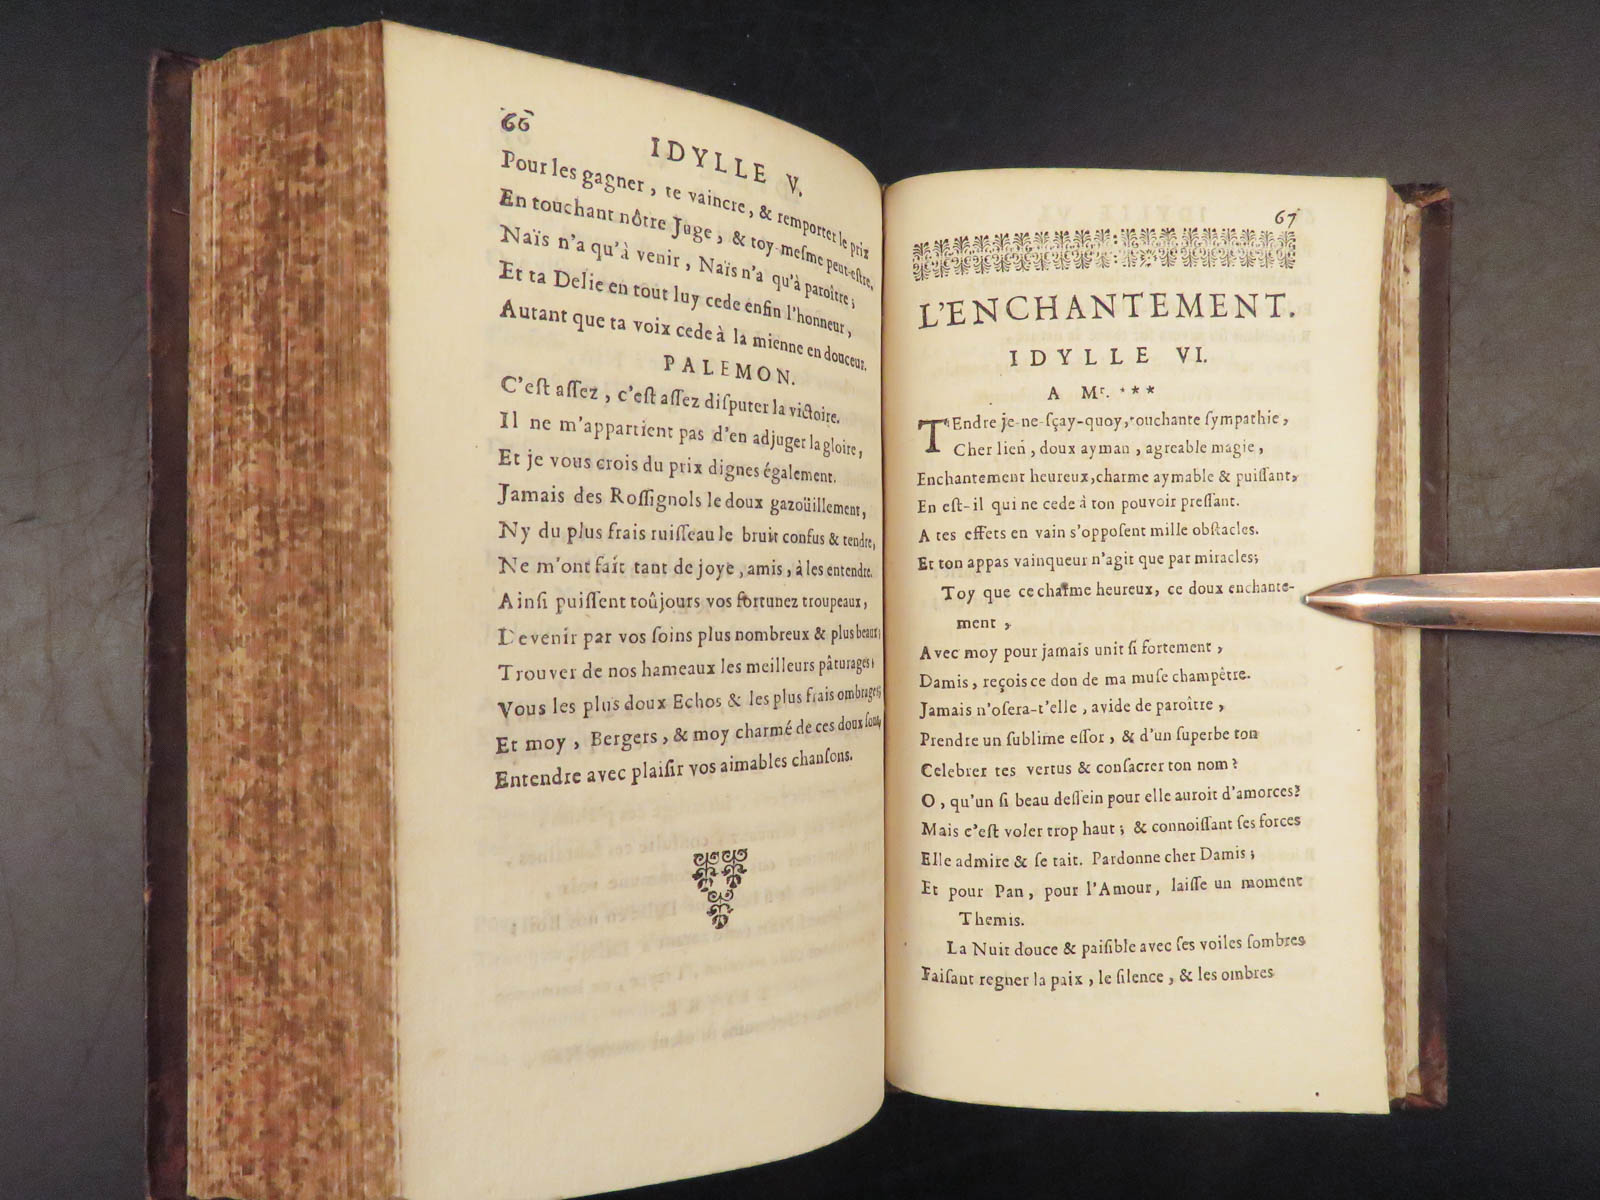 66
IDYLLE V.
Pour les gagner, te vaincre, & remporter le prix
En touchant nôtre Juge, & toy-meſme peut-eſtre,
Naïs n'a qu'à venir, Naïs n'a qu'à paroître;
Et ta Delie en tout luy cede enfin l'honneur,
Autant que ta voix cede à la mienne en douceur.
PALEMON.
C'eſt aſſez, c'eſt aſſez diſputer la victoire.
Il ne m'appartient pas d'en adjuger la gloire,
Et je vous crois du prix dignes également.
Jamais des Roſſignols le doux gazoüillement,
Ny du plus frais ruiſſeau le bruit confus & tendre,
Ne m'ont fait tant de joye, amis, à les entendre.
Ainſi puiſſent toûjours vos fortunez troupeaux,
Devenir par vos ſoins plus nombreux & plus beaux;
Trouver de nos hameaux les meilleurs pâturages;
Vous les plus doux Echos & les plus frais ombrages;
Et moy, Bergers, & moy charmé de ces doux ſons,
Entendre avec plaiſir vos aimables chanſons.
67
L'ENCHANTEMENT.
IDYLLE VI.
A Mr. ***
TEndre je-ne-ſçay-quoy, touchante ſympathie,
Cher lien, doux ayman, agreable magie,
Enchantement heureux, charme aymable & puiſſant,
En eſt-il qui ne cede à ton pouvoir preſſant.
A tes effets en vain s'oppoſent mille obſtacles.
Et ton appas vainqueur n'agit que par miracles;
Toy que ce charme heureux, ce doux enchante-
ment,
Avec moy pour jamais unit ſi fortement,
Damis, reçois ce don de ma muſe champêtre.
Jamais n'oſera-t'elle, avide de paroître,
Prendre un ſublime eſſor, & d'un ſuperbe ton
Celebrer tes vertus & conſacrer ton nom?
O, qu'un ſi beau deſſein pour elle auroit d'amorces?
Mais c'eſt voler trop haut; & connoiſſant ſes forces
Elle admire & ſe tait. Pardonne cher Damis;
Et pour Pan, pour l'Amour, laiſſe un moment
Themis.
La Nuit douce & paiſible avec ſes voiles ſombres
Faiſant regner la paix, le ſilence, & les ombres